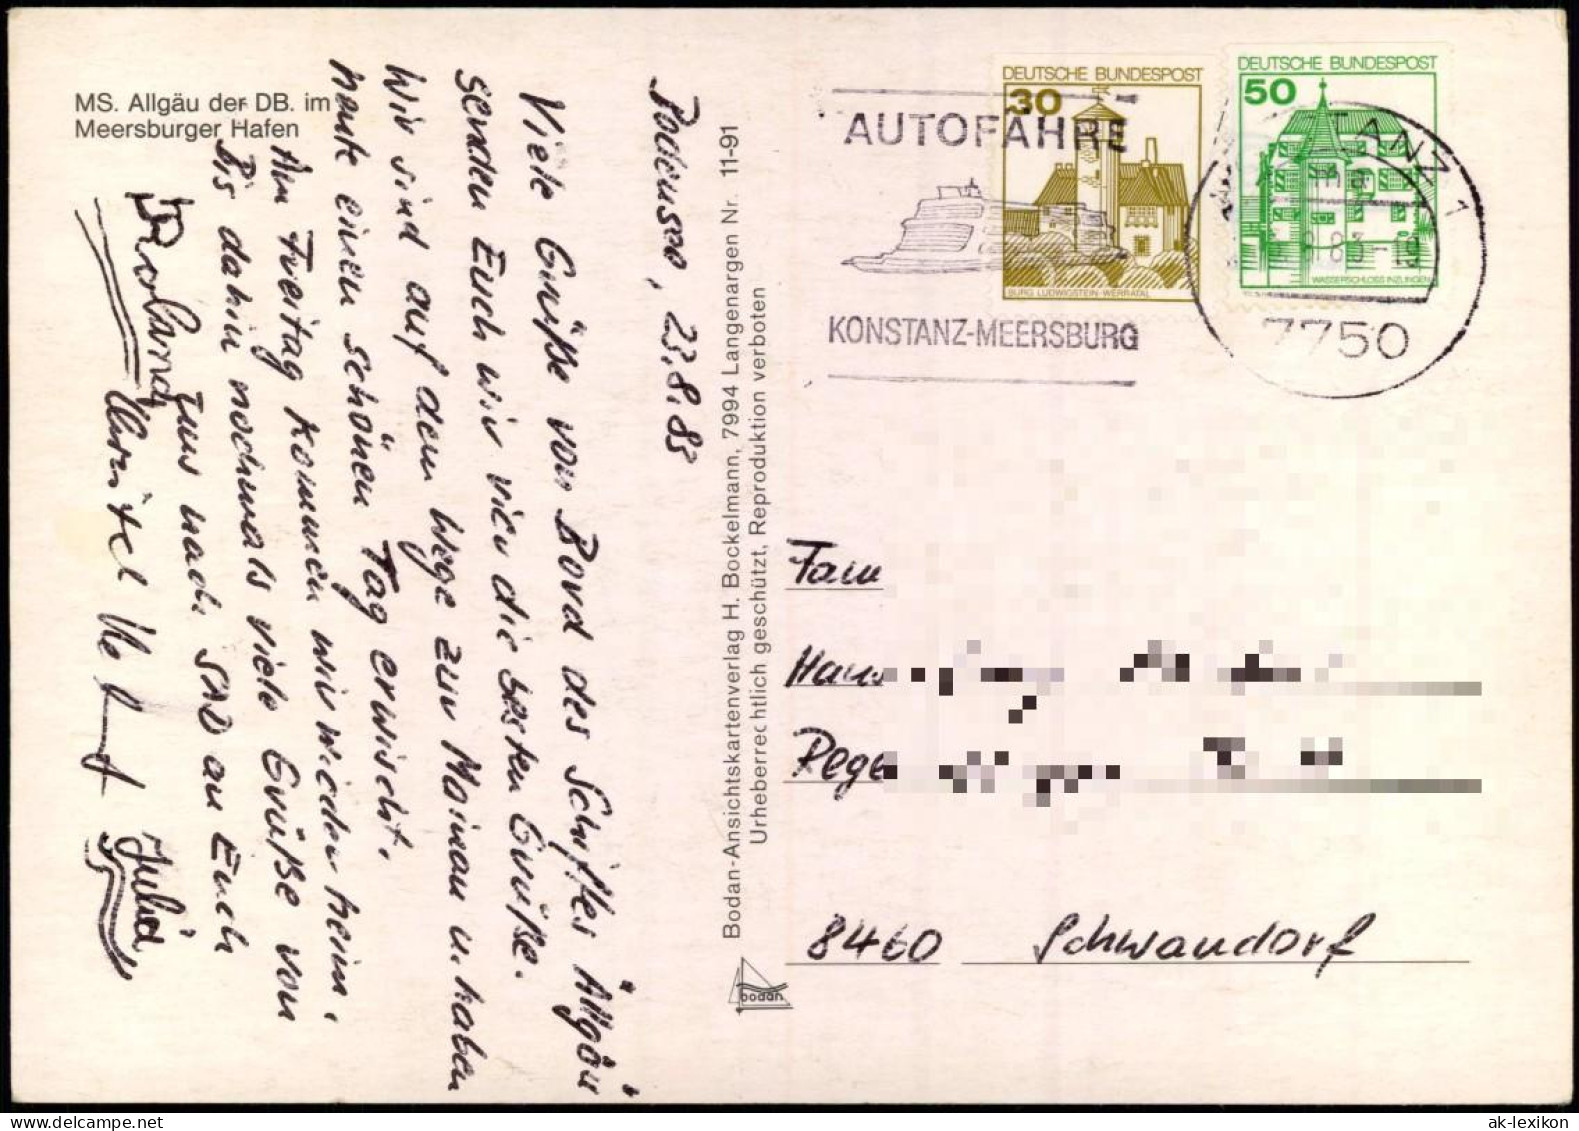 MS. Allgäu der DB. im
Meersburger Hafen
Bodensee, 23.8.83
Viele Grüße von Bord des Schiffes "Allgäu"
senden Euch wir vier die besten Grüße.
Wir sind auf dem Wege zur Mainau u. haben
heute einen schönen Tag erwischt.
Am Freitag kommen wir wieder heim.
Bis dahin nochmals viele Grüße von
uns nach SAD an Euch
Roland
Julia
Bodan-Ansichtskartenverlag H. Bockelmann, 7994 Langenargen Nr. 11-91
Urheberrechtlich geschützt, Reproduktion verboten
bodan
AUTOFÄHRE
KONSTANZ-MEERSBURG
DEUTSCHE BUNDESPOST
30
BURG LUDWIGSTEIN-WERRATAL
DEUTSCHE BUNDESPOST
50
WASSERSCHLOSS INZLINGEN
7750
Fam
Hans
Rege
8460 Schwandorf
ak-lexikon